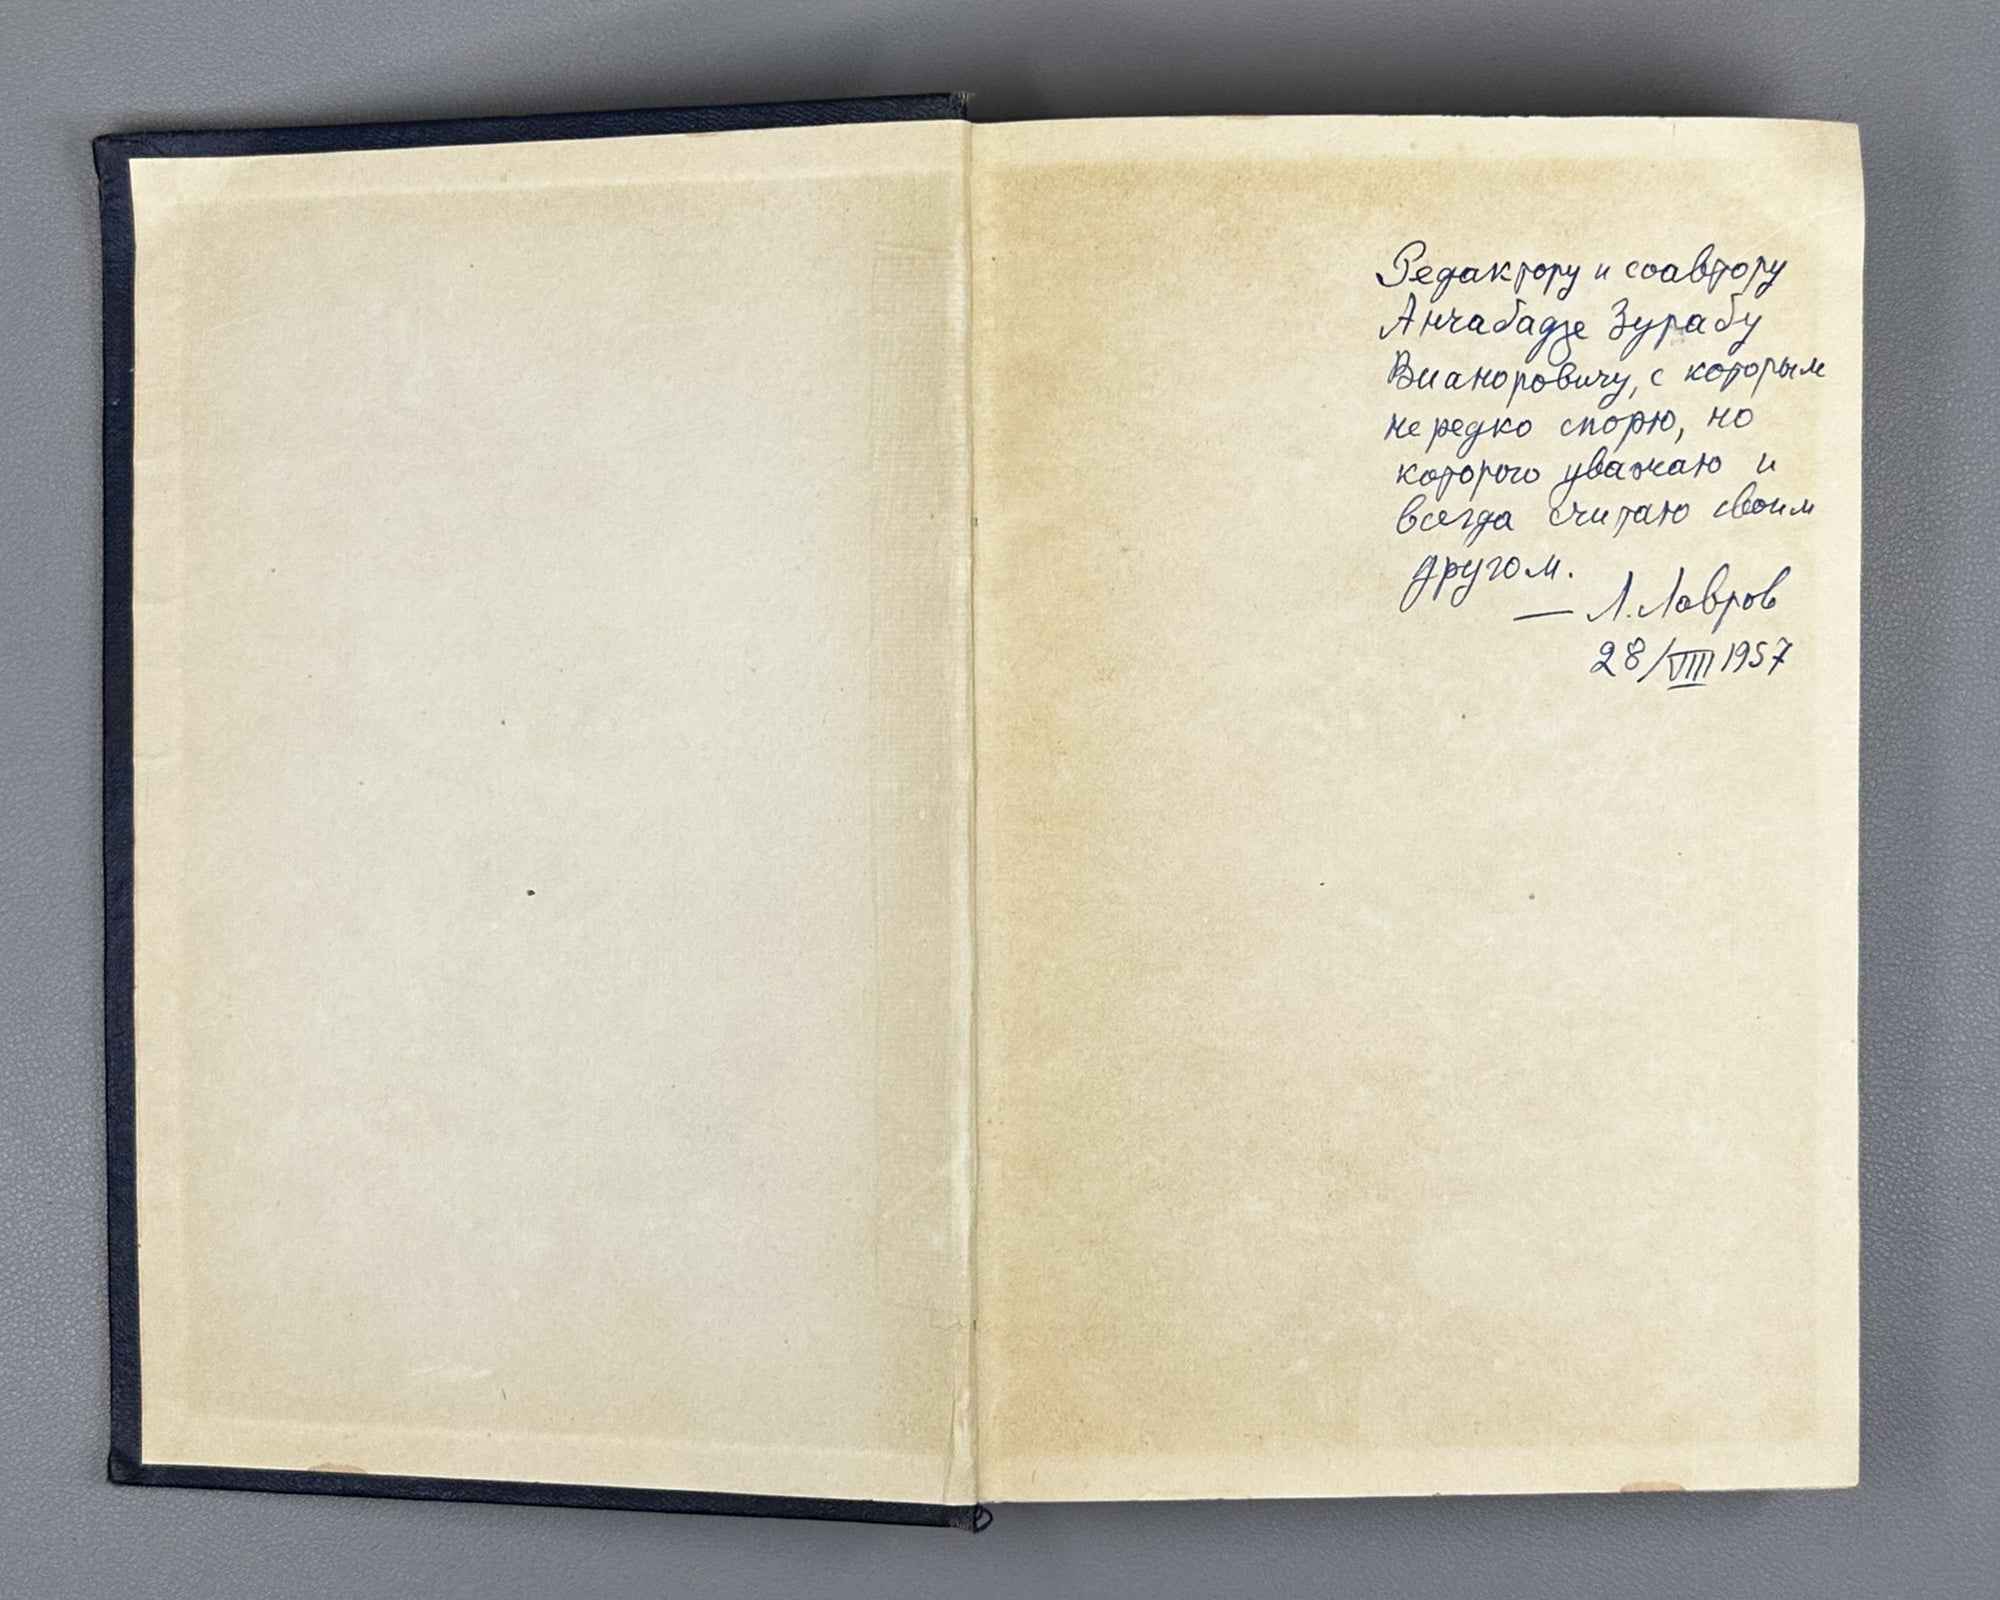 Редактору и соавтору
Анчабадзе Зурабу
Вианоровичу, с которым
нередко спорю, но
которого уважаю и
всегда считаю своим
другом.
— Л. Лавров
28/VIII 1957